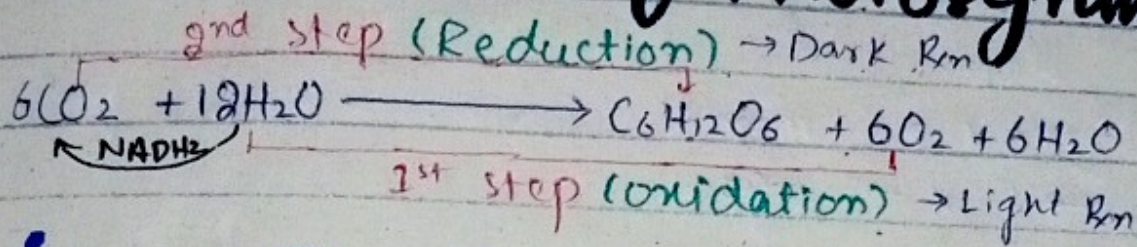 2nd step (Reduction) → Dark Rxn
6CO2 + 12H2O ⟶ C6H12O6 + 6O2 + 6H2O
NADH2
1st step (oxidation) → Light Rxn